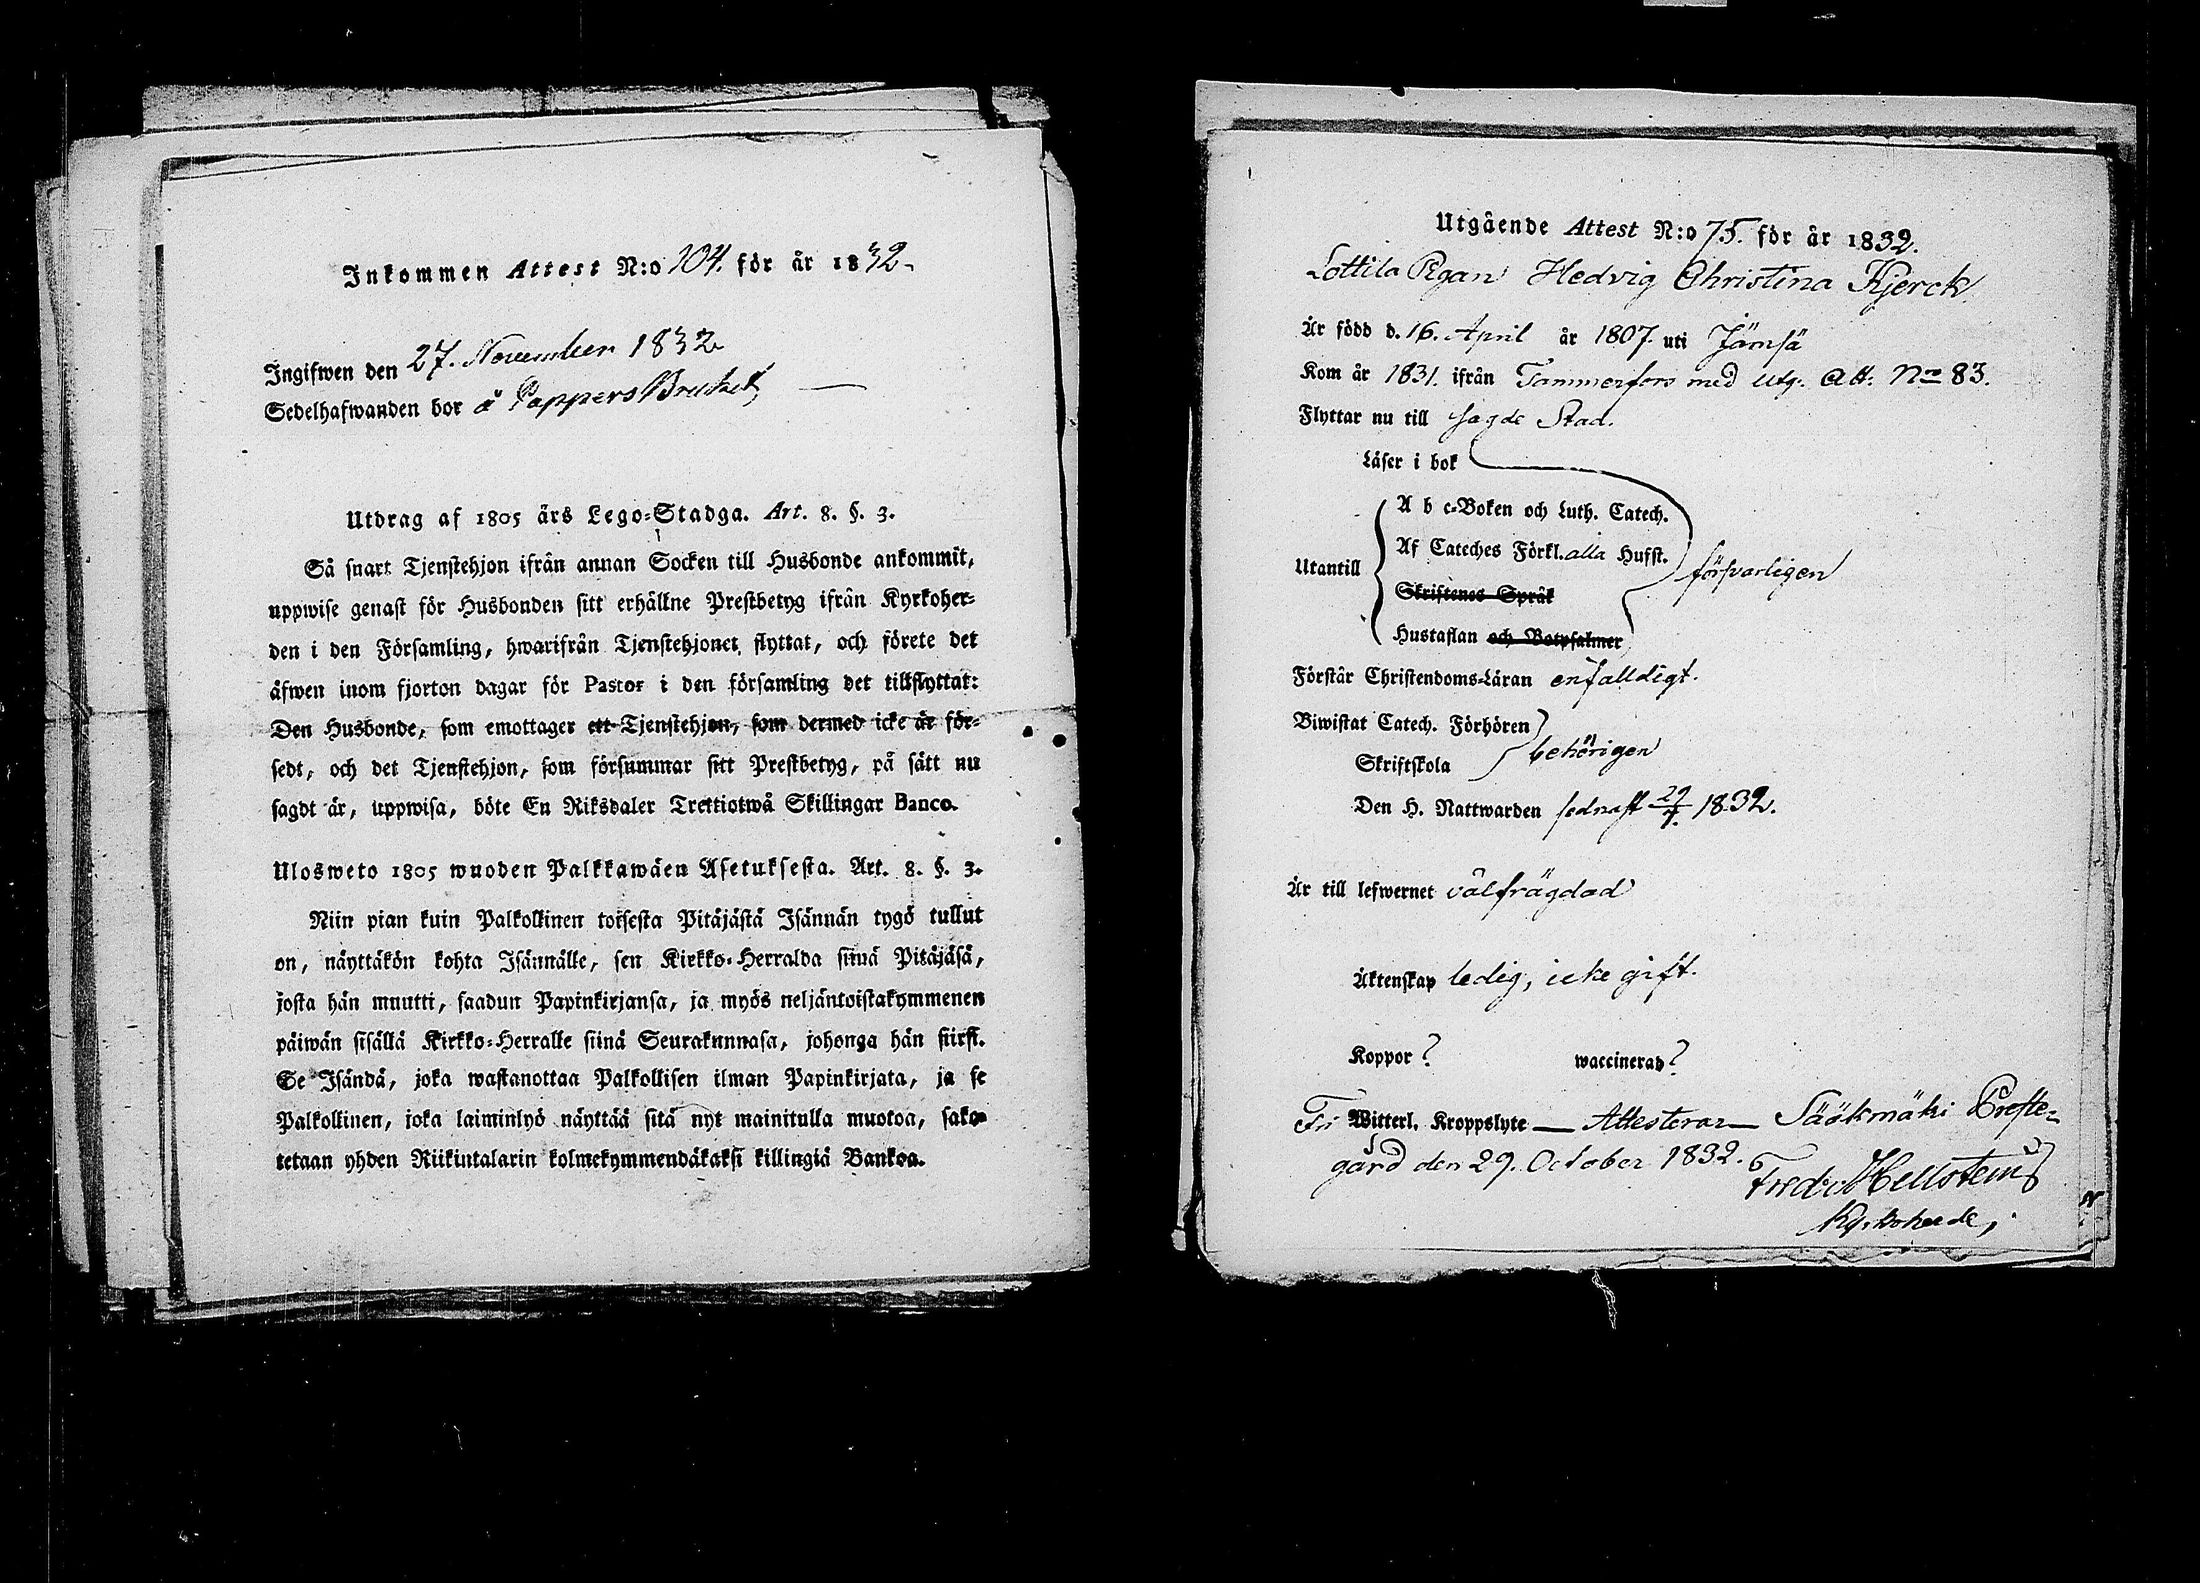 Inkommen Attest N:o 104. för år 1832.
Ingifwen den 27. November 1832
Sedelhafwanden bor å PappersBruket
Utdrag af 1805 års Lego-Stadga. Art. 8. §. 3.
Så snart Tjenstehjon ifrån annan Socken till Husbonde ankommit,
uppwise genast för Husbonden sitt erhållne Prestbetyg ifrån Kyrkoher-
den i den Församling, hwarifrån Tjenstehjonet flyttat, och förete det
äfwen inom fjorton dagar för Pastor i den församling det tillflyttat:
Den Husbonde, som emottager ett Tjenstehjon, som dermed icke är för-
sedt, och det Tjenstehjon, som försummar sitt Prestbetyg, på sätt nu
sagdt är, uppwisa, böte En Riksdaler Trettiotwå Skillingar Banco.
Ulosweto 1805 wuoden Palkkawäen Asetuksesta. Art. 8. §. 3.
Niin pian kuin Palkollinen toisesta Pitäjästä Isännän tygö tullut
on, näyttäkön kohta Isännälle, sen Kirkko-Herralda siinä Pitäjäsä,
josta hän muutti, saadun Papinkirjansa, ja myös neljäntoistakymmenen
päiwän sisällä Kirkko-Herralle siinä Seurakunnasa, johonga hän siirsi.
Se Isändä, joka wastanottaa Palkollisen ilman Papinkirjata, ja se
Palkollinen, joka laiminlyö näyttää sitä nyt mainitulla muotoa, sako-
tetaan yhden Riikintalarin kolmekymmendäkaksi killingiä Bankoa.
Utgående Attest N:o 75. för år 1832.
Lottila Pigan Hedvig Christina Kjerck
Är född d. 16. April år 1807. uti Jämsä
Kom år 1831. ifrån Tammerfors med Utg. Att. No 83.
Flyttar nu till sagde Stad.
Läser i bok
Utantill
A b c-Boken och Luth. Catech.
Af Cateches Förkl. alla Hufst.
Skriftenes Språk
Hustaflan och Botpsalmer
försvarligen
Förstår Christendoms-Läran enfalldigt.
Biwistat Catech. Förhören
Skriftskola
behörigen
Den H. Nattwarden sednast 29/7. 1832.
Är till lefwernet välfrägdad
Äktenskap ledig, icke gift.
Koppor? waccinerad?
Fri Witterl. Kroppslyte — Attesterar — Sääksmäki Preste-
gård den 29. October 1832.
Fredr. Hellsteniuss
Kyrkoherde,